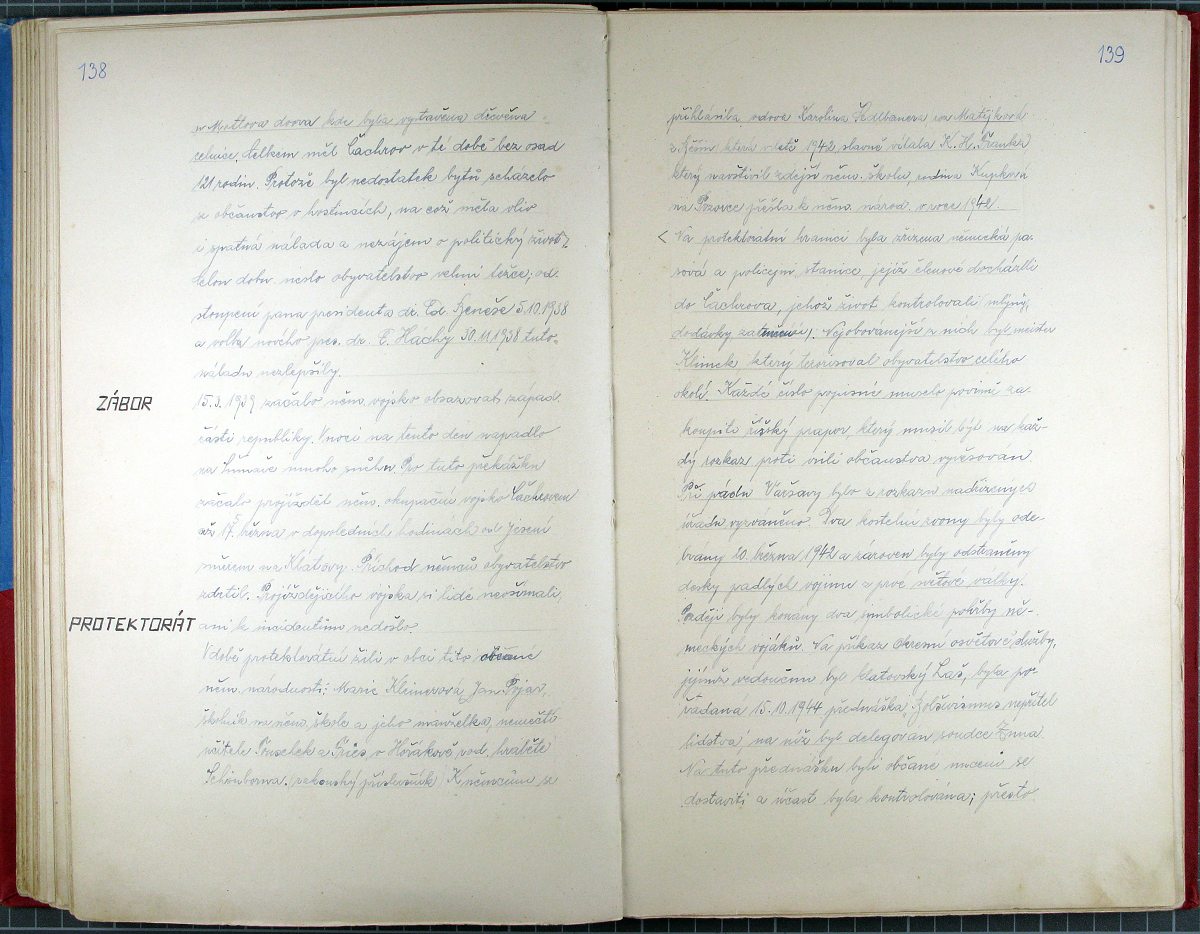 138
u Motlova dvora kde byla vystavěna dřevěna
celnice. Celkem měl Čachrov v té době bez osad
121 rodin. Protože byl nedostatek bytů scházelo
se občanstvo v hostincích, na což měla vliv
i spatná nálada a nezájem o politický život
celou dobu neslo obyvatelstvo velmi těžce; od-
stoupení pana presidenta dr. Ed. Beneše 5.10.1938
a volba nového pres. dr. E. Háchy 30.11.1938 tuto
náladu nezlepšily.
ZÁBOR
15.3.1939 začalo něm. vojsko obsazovat západ.
části republiky. V noci na tento den napadlo
na Šumavě mnoho sněhu. Pro tuto překážku
začalo projíždět něm. okupační vojsko Čachrovem
až 17. března v dopoledních hodinách od Javorné
směrem na Klatovy. Příchod němců obyvatelstvo
zdrtil. Projíždějícího vojska si lidé nevšímali,
ani k incidentům nedošlo.
PROTEKTORÁT
V době protektorátu žili v obci tito občané
něm. národnosti: Marie Jan Pojar,
školník na něm. škole a jeho manželka, němečtí
učitelé a v Hořákově vod. hraběte
Schönborna. příslušník K němcům se
139
přihlásila vdova Karolina roz. Matějková
z která v létě 1942 slavně vítala K. H. Franka
který navštívil zdejší něm. školu, rodina Kupková
na přešla k něm. národ. v roce 1942.
< Na protektorátní hranici byla zřízena německá pa-
sová a policejní stanice, jejíž členové docházeli
do Čachrova, jehož život kontrolovali mlýny,
dodávky, zatemnění). z nich byl meister
Klimek který terorisoval obyvatelstvo celého
okolí. Každé číslo popisné muselo povině za-
koupiti říšský prapor, který musil být na kaž-
dý rozkaz proti vůli občanstva vyvěšován.
Při pádu Varšavy bylo z rozkazu nadřízených
úřadů vyzváněno. Dva kostelní zvony byly ode-
brány 20. března 1942 a zároveň byly odstraněny
desky padlých vojínů z prvé světové války.
Později byly konány dva symbolické pohřby ně-
meckých vojáků. Na příkaz Okresní osvětové služby,
jejímž vedoucím byl klatovský Laš, byla po-
řádána 15.10.1944 přednáška, "Bolševismus nepřítel
lidstva" na níž byl delegován soudce Zuna.
Na tuto přednášku byli občané nuceni se
dostaviti a účast byla kontrolována; přesto